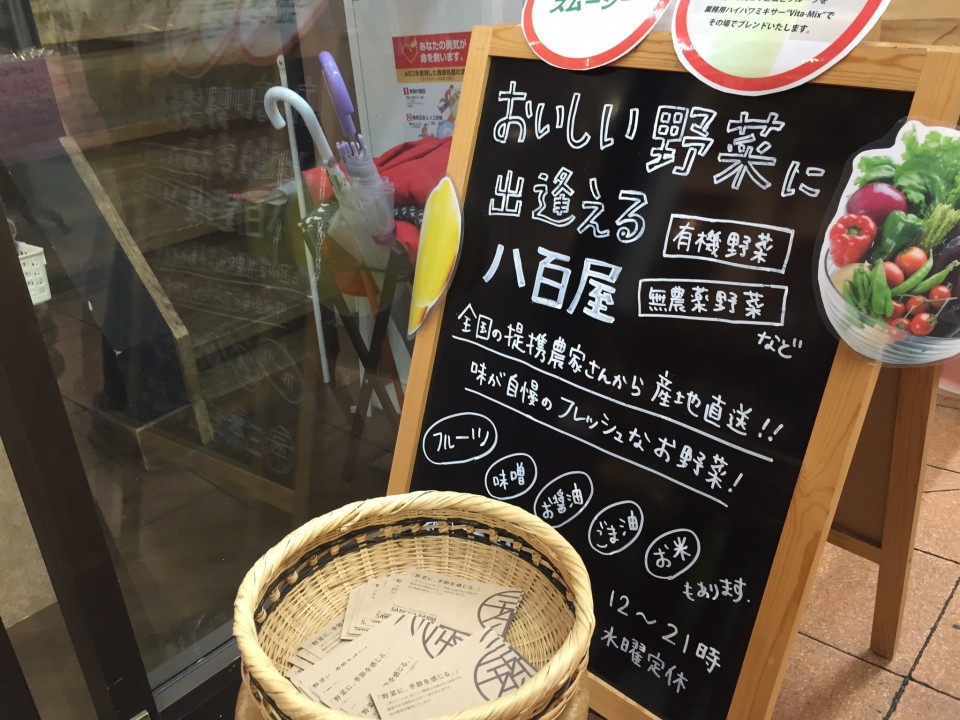 スムージー
業務用ハイパワミキサー"Vita-Mix"で
その場でブレンドいたします。
あなたの勇気が
命を救います。
おいしい野菜に
出逢える
八百屋
有機野菜
無農薬野菜
など
全国の提携農家さんから産地直送!!
味が自慢のフレッシュなお野菜!
フルーツ
味噌
お醤油
ごま油
お米
もあります.
12~21時
水曜定休
「野菜に、季節を感じる。」
「野菜に、季節を感じる。」